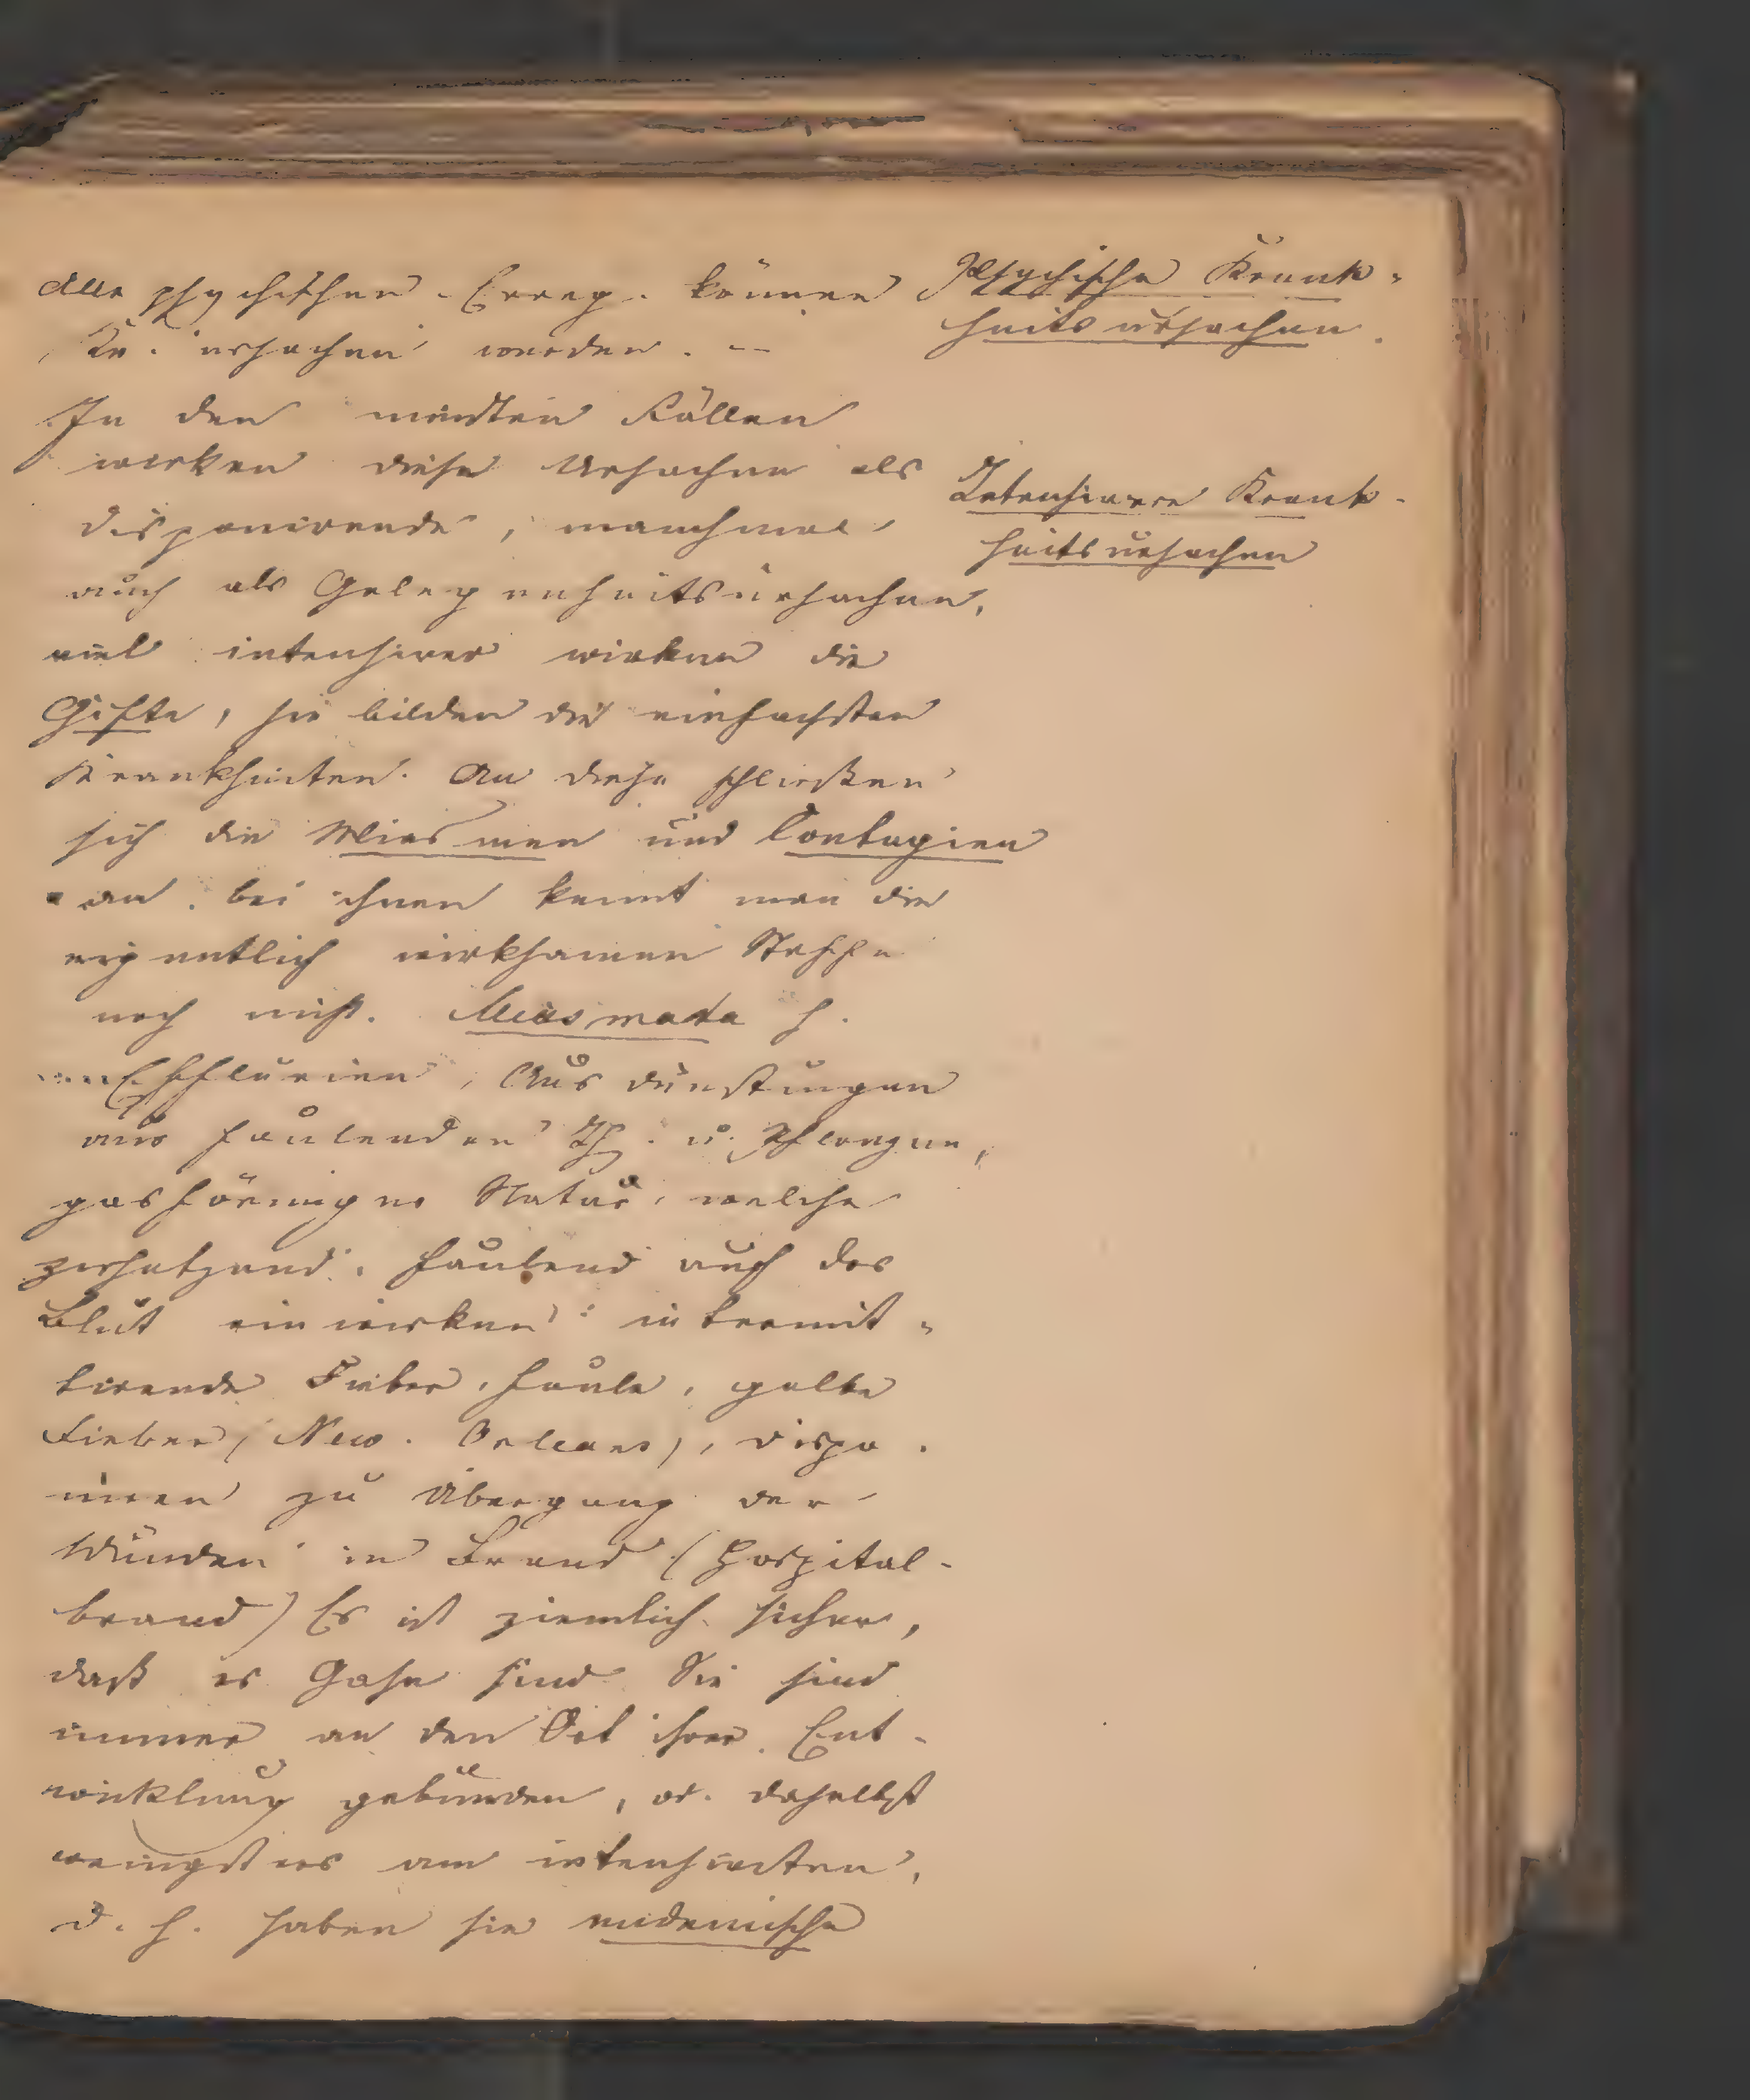 Alle psychischen Erreg. können
Kr. ursachen werden. –
Psychische Krank-
heitsursachen.
In den meisten Fällen
wirken diese Ursachen als
disponirende, manchmal
auch als Gelegenheitsursachen,
viel intensiver wirken die
Gifte, sie bilden die einfachsten
Krankheiten. An diese schließen
sich die Miasmen und Contagien
an. bei ihnen kennt man die
eigentlich wirksamen Stoffe
noch nicht. Miasmata h.
Intensivere Krank-
heitsursachen
Effluvien, Ausdünstungen
aus faulenden Th. u. Pflanzen,
gasförmiger Natur, welche
zersetzend, faulend auf das
Blut einwirken: intermit-
tirende Fieber, faule, gelbe
Fieber (New. Orleans), dispo-
niren zu Übergang der
Wunden in Brand (Hospital-
brand) Es ist ziemlich sicher,
daß es Gase sind Sie sind
immer an den Ort ihrer Ent-
wicklung gebunden, od. daselbst
wenigstens am intensivsten,
d. h. haben sie endemische